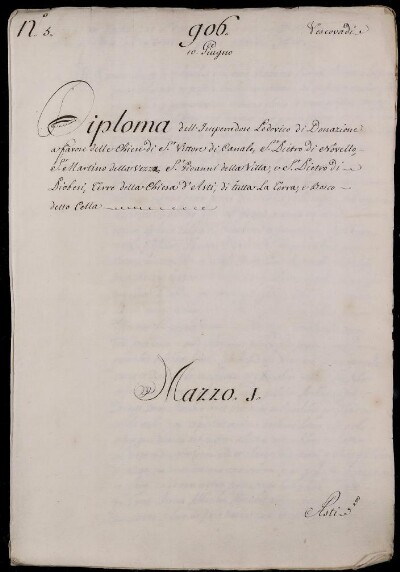 N.º 5.
906.
10. Giugno
Vescovadi
Diploma dell'Imperadore Lodovico di Donazione
a favore delle Chiese di S.n Vittore di Canale, S.n Pietro di Novello,
S.n Martino della Vezza, S.n Gioanni della Villa, e S.n Pietro di
Bioberi, Terre della Chiesa d'Asti, di tutta la Terra, e Bosco
detto Cella
Mazzo. 1.
Asti